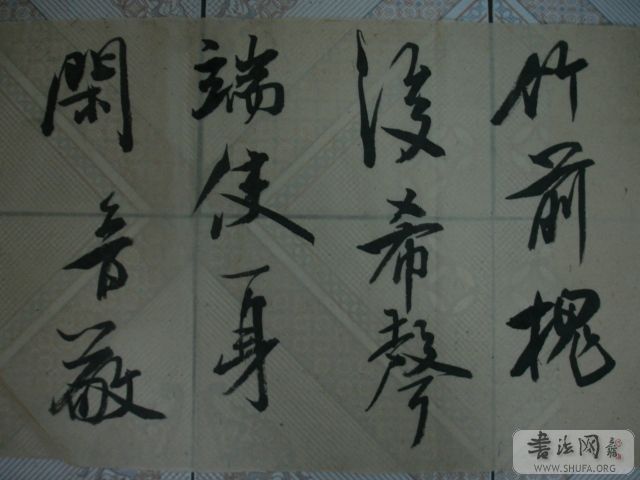 竹前槐
後希聲
端使一身
閑音
書法网
WWW.SHUFA.ORG